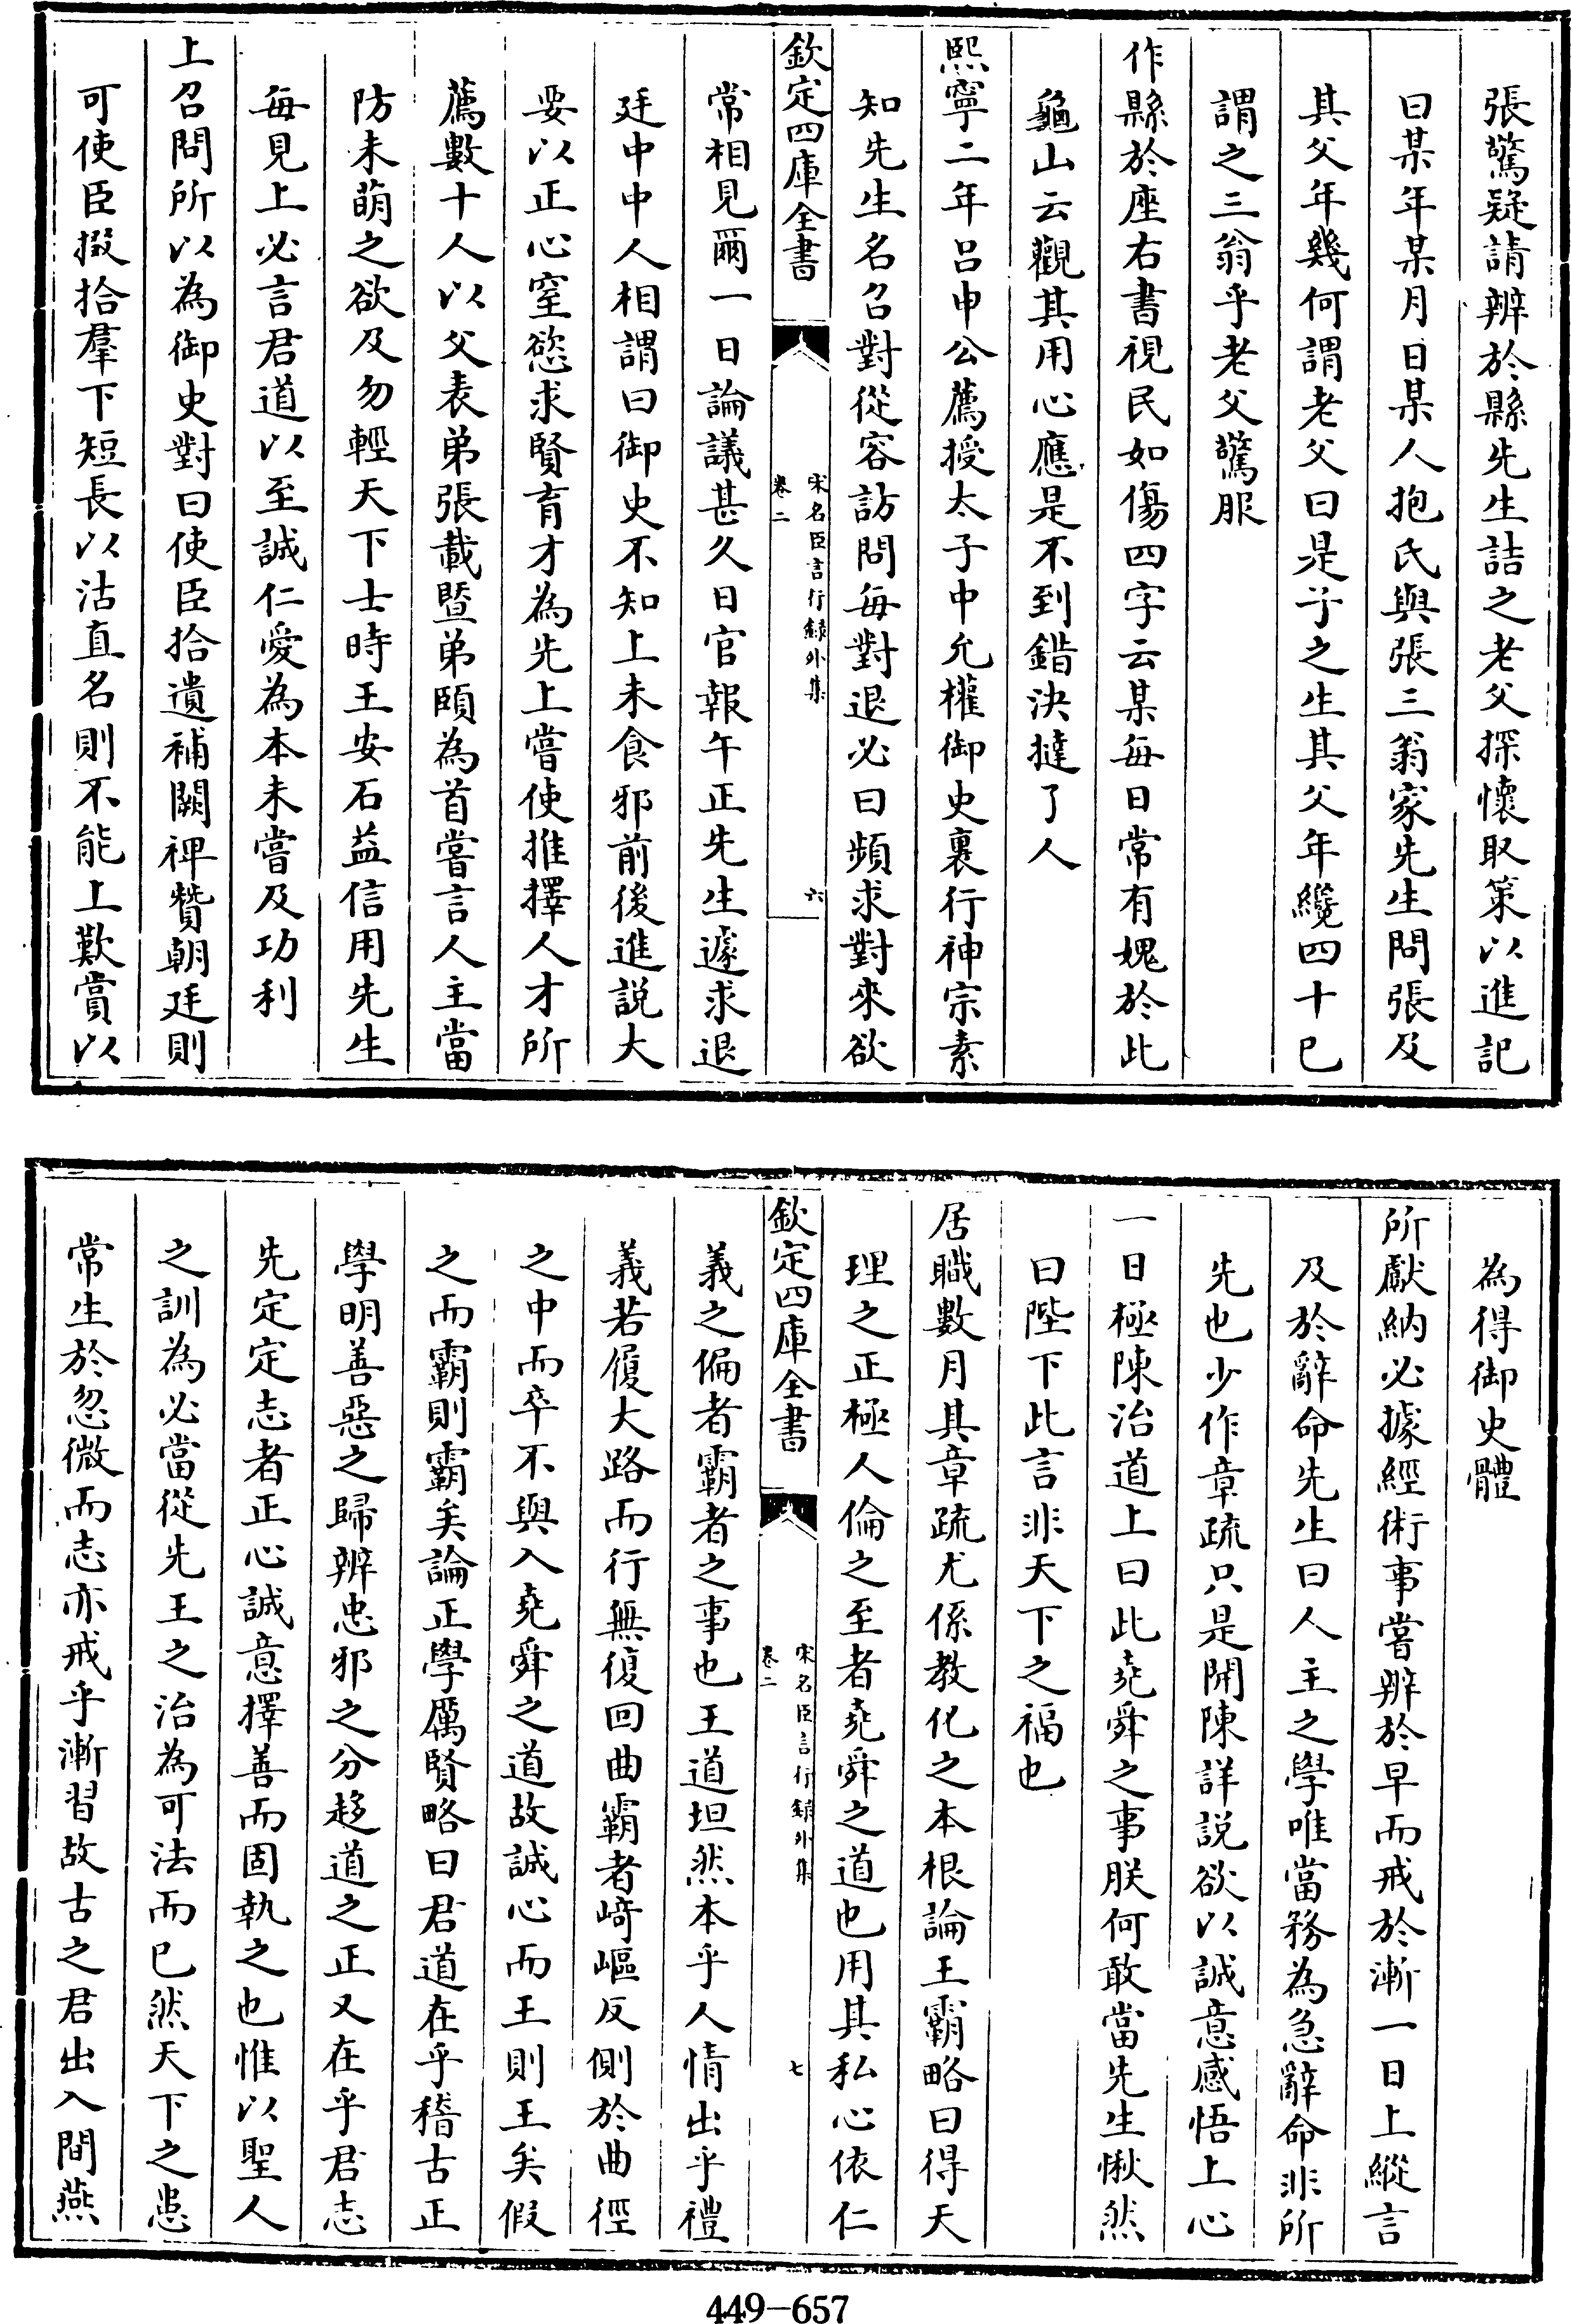 張驚疑請辨於縣先生詰之老父探懷取策以進記
曰某年某月日某人抱氏與張三翁家先生問張及
其父年幾何謂老父曰是子之生其父年纔四十已
謂之三翁乎老父驚服
作縣於座右書視民如傷四字云某每日常有媿於此
龜山云觀其用心應是不到錯決撻了人
熙寧二年呂申公薦授太子中允權御史裏行神宗素
知先生名召對從容訪問每對退必曰頻求對來欲
欽定四庫全書
宋名臣言行録外集
卷二
六
常相見爾一日論議甚久日官報午正先生遽求退
廷中中人相謂曰御史不知上未食邪前後進說大
要以正心窒慾求賢育才為先上嘗使推擇人才所
薦數十人以父表弟張載暨弟頤為首嘗言人主當
防未萌之欲及勿輕天下士時王安石益信用先生
每見上必言君道以至誠仁愛為本未嘗及功利
上召問所以為御史對曰使臣拾遺補闕裨贊朝廷則
可使臣掇拾羣下短長以沽直名則不能上歎賞以
為得御史體
所獻納必據經術事嘗辨於早而戒於漸一日上縱言
及於辭命先生曰人主之學唯當務為急辭命非所
先也少作章疏只是開陳詳說欲以誠意感悟上心
一日極陳治道上曰此堯舜之事朕何敢當先生愀然
曰陛下此言非天下之福也
居職數月其章疏尤係教化之本根論王霸略曰得天
理之正極人倫之至者堯舜之道也用其私心依仁
欽定四庫全書
宋名臣言行録外集
卷二
七
義之偏者霸者之事也王道坦然本乎人情出乎禮
義若履大路而行無復回曲霸者崎嶇反側於曲徑
之中而卒不與入堯舜之道故誠心而王則王矣假
之而霸則霸矣論正學厲賢略曰君道在乎稽古正
學明善惡之歸辨忠邪之分趍道之正又在乎君志
先定定志者正心誠意擇善而固執之也惟以聖人
之訓為必當從先王之治為可法而已然天下之患
常生於忽微而志亦戒乎漸習故古之君出入閒燕
449-657